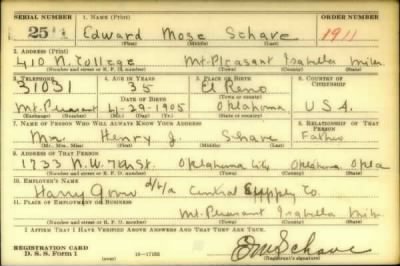 SERIAL NUMBER 1. NAME (Print) ORDER NUMBER
25 Edward Mose Schave 1911
(First) (Middle) (Last)
2. ADDRESS (Print)
410 N. College Mt. Pleasant Isabella Mich.
(Number and street or R. F. D. number) (Town) (County) (State)
3. TELEPHONE 4. AGE IN YEARS 5. PLACE OF BIRTH 6. COUNTRY OF CITIZENSHIP
31031 35 El Reno
DATE OF BIRTH
Mt. Pleasant 4-29-1905 Oklahoma U S A.
(Exchange) (Number) (Mo.) (Day) (Yr.) (State or country)
7. NAME OF PERSON WHO WILL ALWAYS KNOW YOUR ADDRESS 8. RELATIONSHIP OF THAT PERSON
Mr. Henry J. Schave Father
(Mr., Mrs., Miss) (First) (Middle) (Last)
9. ADDRESS OF THAT PERSON
1733 N.W. 7th St. Oklahoma City Oklahoma Okla
(Number and street or R. F. D. number) (Town) (County) (State)
10. EMPLOYER'S NAME
Harry d/b/a Central Supply Co.
11. PLACE OF EMPLOYMENT OR BUSINESS
Mt. Pleasant Isabella Mich
(Number and street or R. F. D. number) (Town) (County) (State)
I AFFIRM THAT I HAVE VERIFIED ABOVE ANSWERS AND THAT THEY ARE TRUE.
REGISTRATION CARD
D. S. S. Form 1 16—17105 EMSchave
(Registrant's signature)